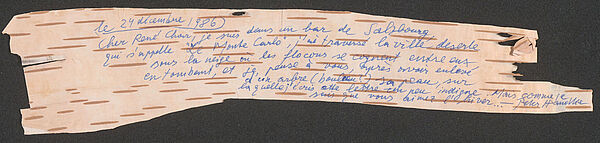 le 24 décembre (1986)
Cher René Char, je suis dans un bar de Salzbourg
qui s'appelle Le Monte Carlo, J'ai traversé la ville déserte
sous la neige où les flocons se cognent entre eux
en tombant, et j'ai pensé à vous après avoir enlevé
d'un arbre (bouleau) sa peau sur
laquelle j'écris cette lettre un peu indigne. Mais comme je
sais que vous aimez l'hiver... Peter Handke